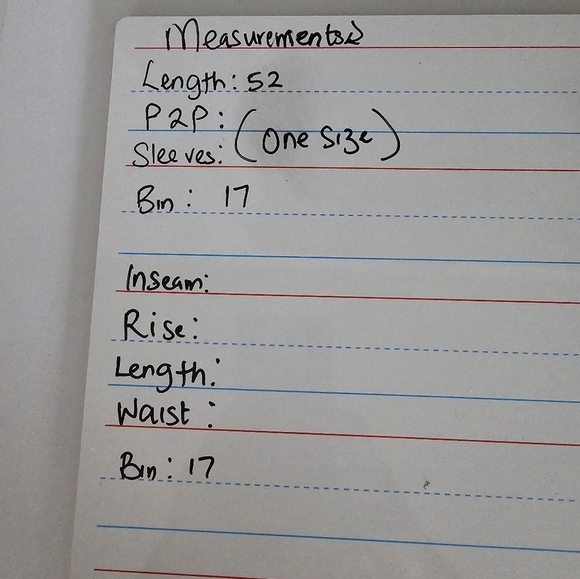 Measurements
Length: 52
P2P:
(One Size)
Sleeves:
Bin: 17
Inseam:
Rise:
Length:
Waist:
Bin: 17